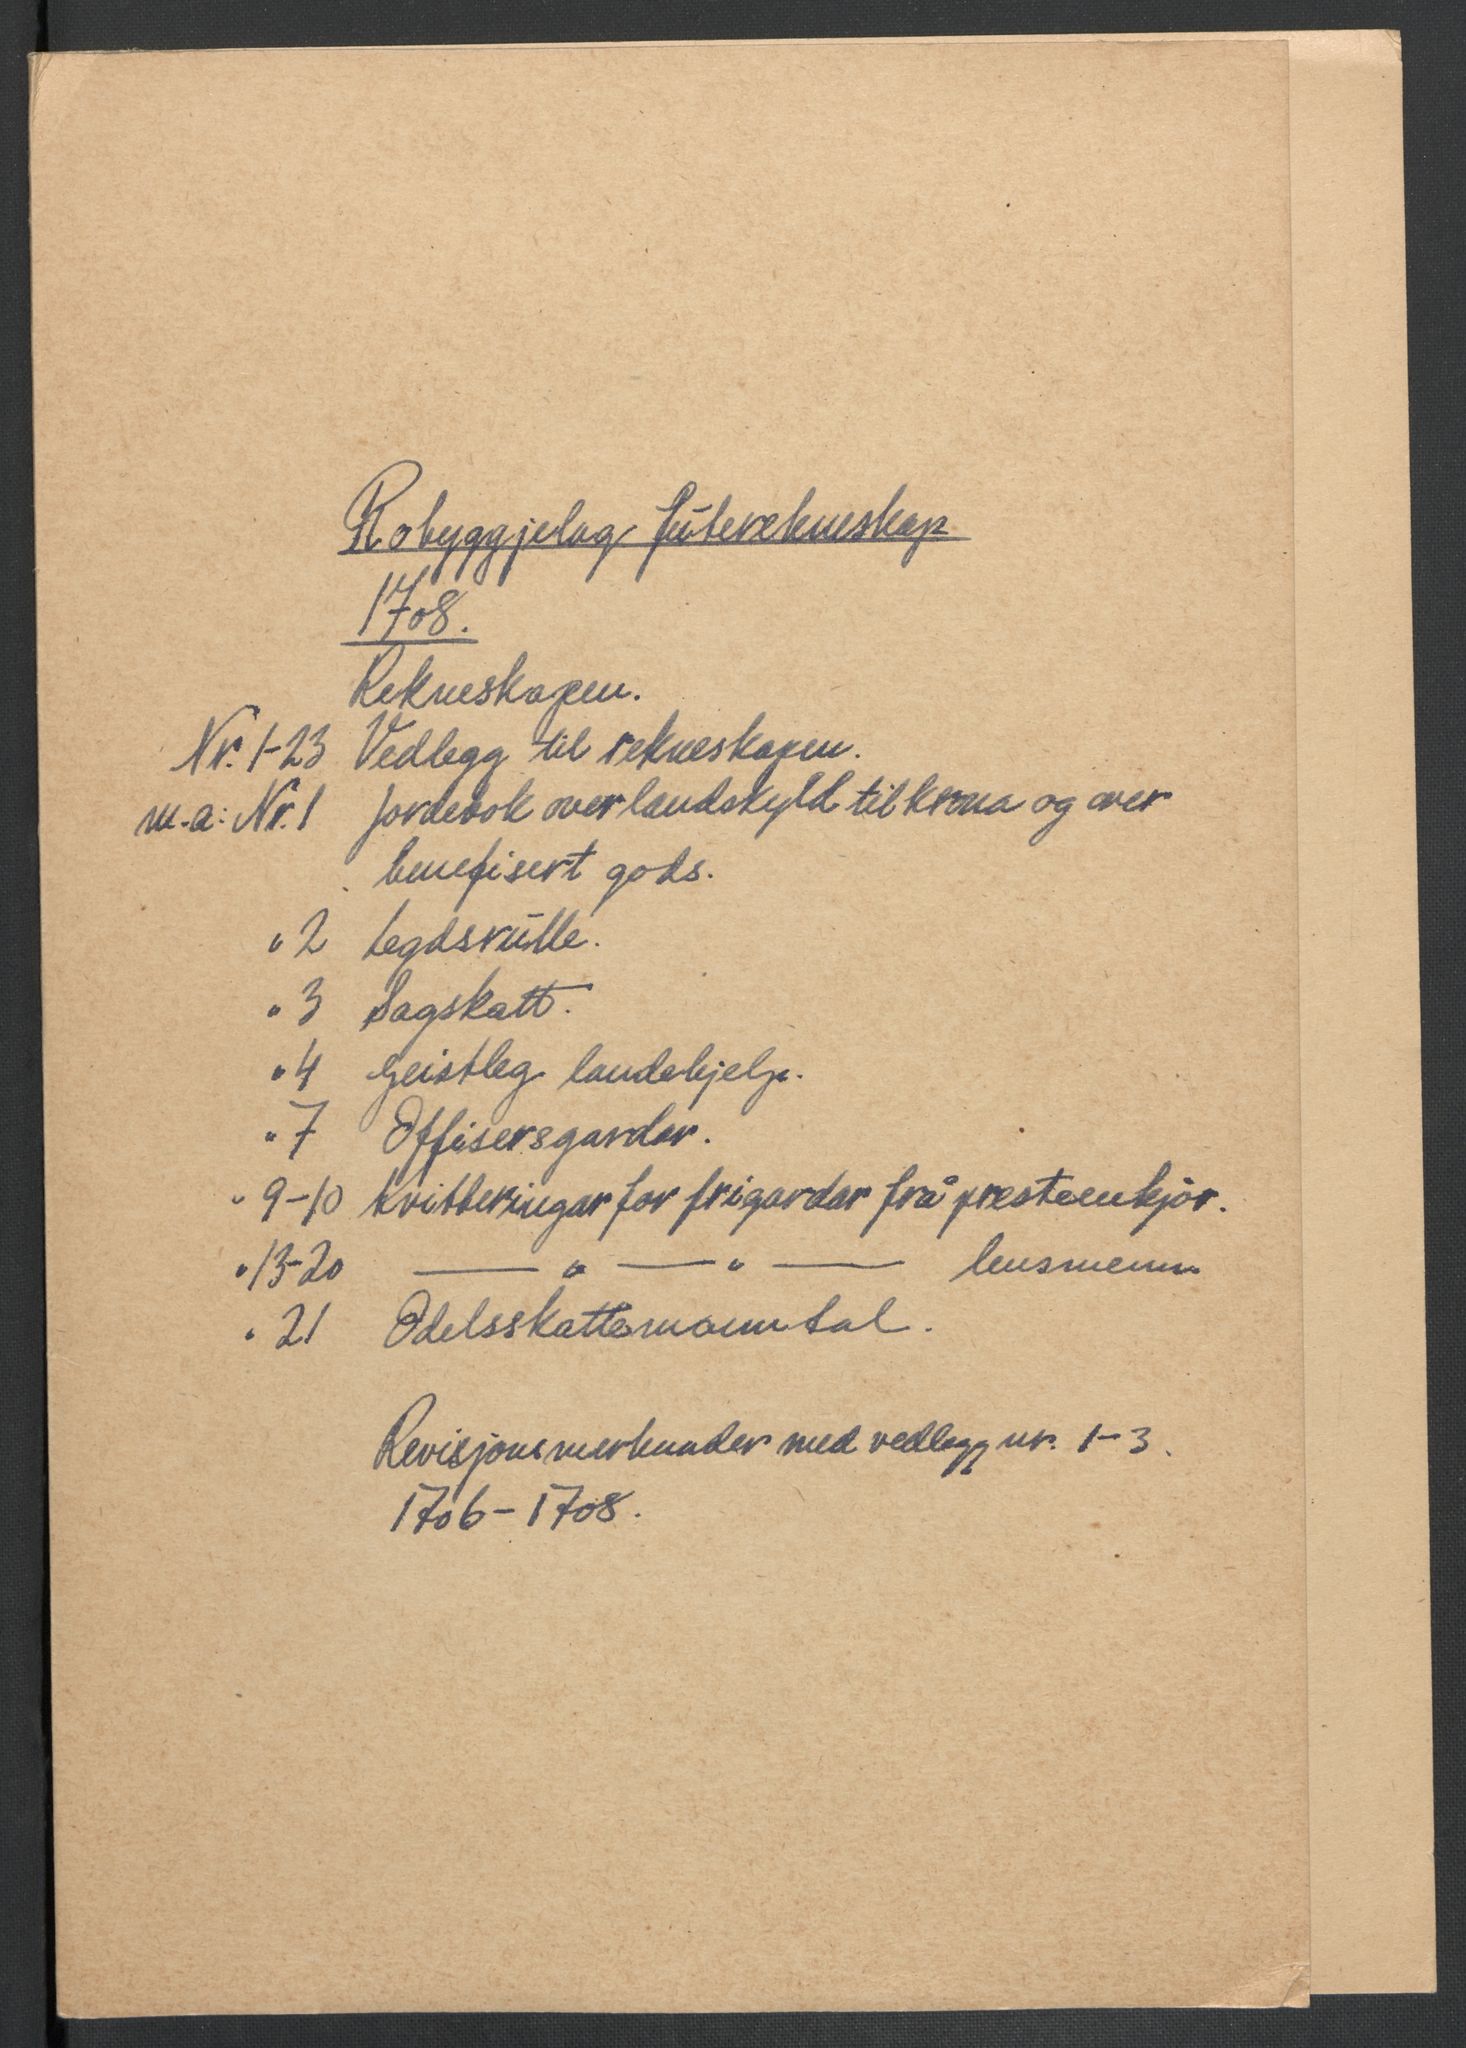 Robyggjelag futerekneskap
1708.
Rekneskapen.
Nr. 1-23 Vedlegg til rekneskapen.
m.a: Nr. 1 Jordebok over landskyld til krona og over
benefisert gods.
" 2 Legdsrulle.
" 3 Sagskatt.
" 4 Geistleg landehjelp.
" 7 Offisersgardar.
" 9-10 Kvitteringar for frigardar frå presteenkjor.
" 13-20 — " — " — lensmenn
" 21 Odelsskattemanntal.
Revisjonsmerknader med vedlegg nr. 1-3.
1706-1708.